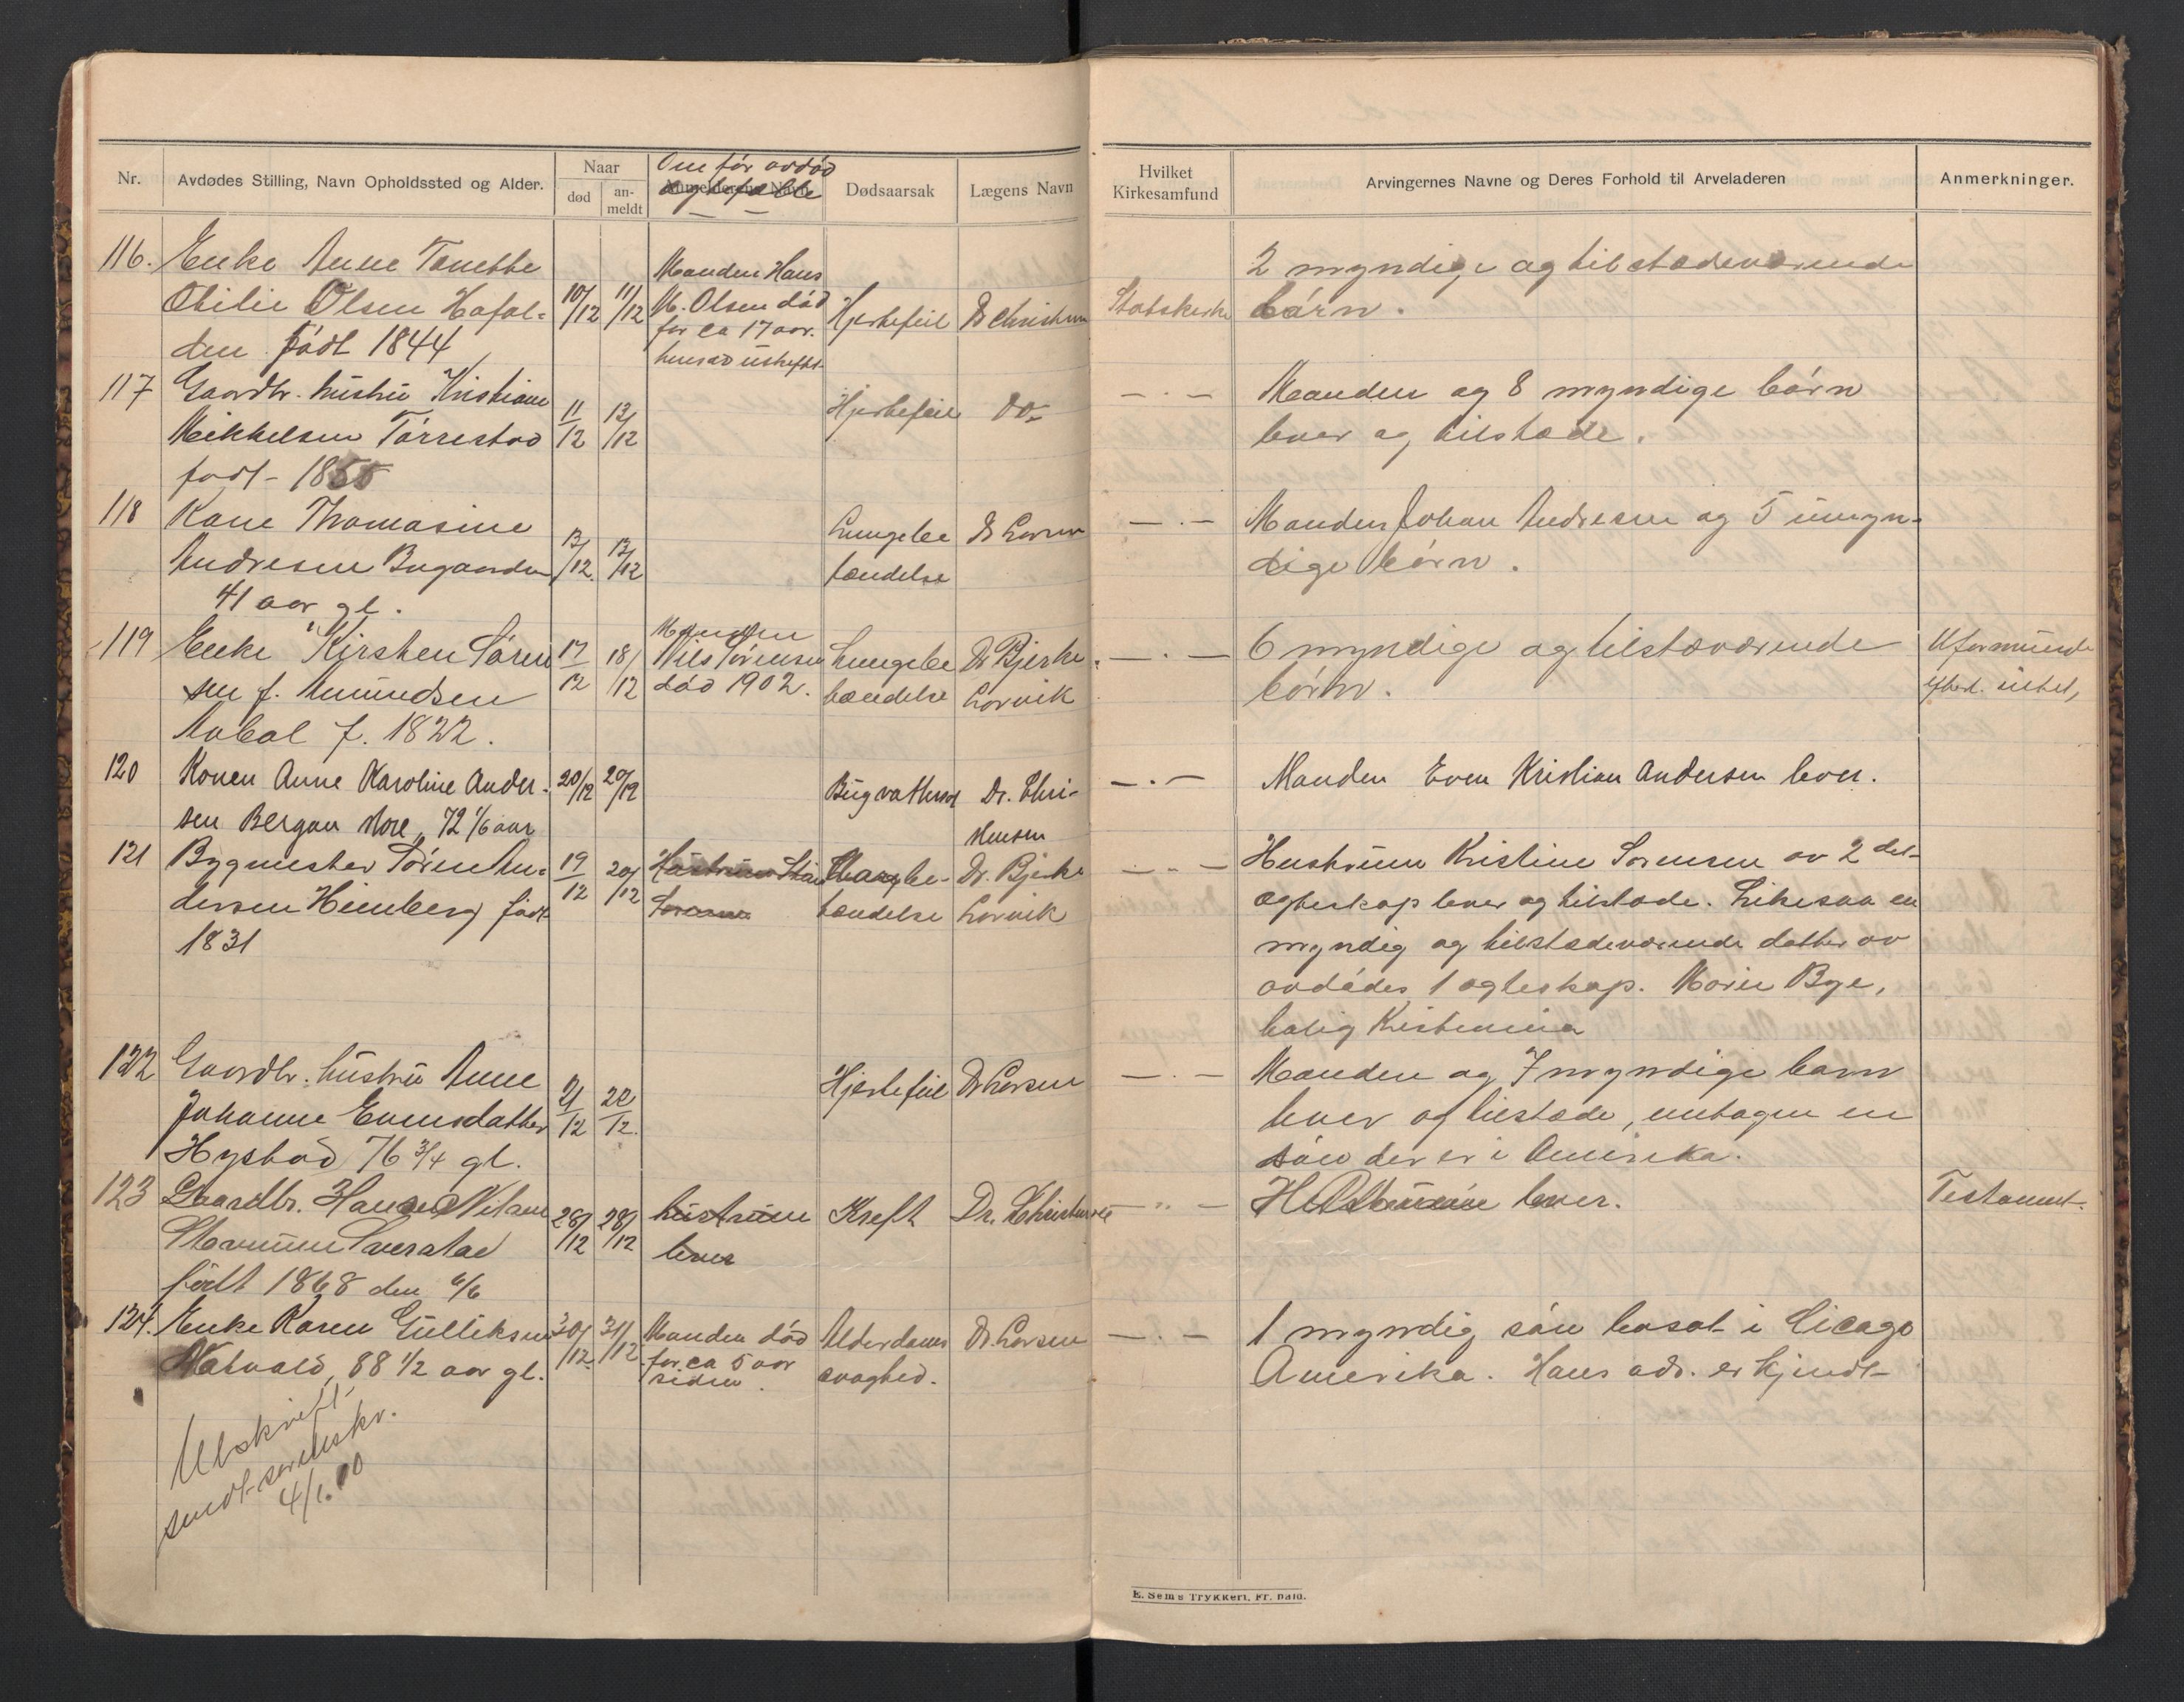 Nr.
Avdødes Stilling, Navn Opholdssted og Alder.
Naar
død
an-
meldt
Om før avdød
Anmelderens Navn
ægtefælle
Dødsaarsak
Lægens Navn
Hvilket
Kirkesamfund
Arvingernes Navne og Deres Forhold til Arveladeren
Anmerkninger.
116. Enke Anne Tonette
Otilie Olsen Hafal-
den født 1844
10/12 11/12
Manden Hans
M. Olsen død
for ca 17 aar.
Hjertefeil
Dr Christensen
Statskirke
2 myndige og tilstedeværende
børn.
117 Gaardbr. hustru Kristiane
Mikkelsen Tørrestad
født - 1855
11/12 13/12
Hjertefeil
Do-
— . —
Manden og 8 myndige børn
lever og tilstede.
118 Kone Thomasine
Andresen Bugaarden
41 aar gl.
13/12 13/12
Lungebe
tændelse
Dr Larsen
— . —
Manden Johan Andresen og 5 umyn-
dige børn.
119 Enke Kirsten Søren
sen f. Amundsen
Aabøl f. 1822.
17/12 18/12
Manden
Nils Sørensen
død 1902.
Lungebe
tændelse
Dr Bjerke
Larvik
— . —
6 myndige og tilstæværende
børn.
120 Konen Anne Karoline Ander-
sen Bergan More, 72 1/6 aar
20/12 20/12
Dr. Chri-
stensen
— . —
Manden Even Kristian Andersen lever.
121 Bygmester Søren An-
dersen Heimberg født
1831
19/12 20/12
Hustruen
Sørensen
tændelse
Dr. Bjerke
Larvik
— " —
Hustruen Kristine Sørensen av 2 det
ægteskap lever og tilstede. Likesaa en
myndig og tilstedeværende datter av
avdødes 1 ægteskap. Maren Bye,
bolig Kristiania
122 Gaardbr. hustru Anne
Johanne Evensdatter
Hystad 76 3/4 gl.
21/12 22/12.
Hjertefeil
Dr Larsen
— . —
Manden og 7 myndige børn
lever og tilstede, untagen en
søn der er i Amerika.
123 Gaardbr. Hans Nilsen
Stavnum
født 1868 den 6/6
28/12 28/12
hustruen
lever
Kreft
Dr. Christensen
— " —
Hustruen lever.
Testament.
124. Enke Karen Gulliksen
Natvald, 88 1/2 aar gl.
30/12. 31/12
Manden død
for ca 5 aar
siden.
Alderdoms
svaghed.
Dr. Larsen
— . —
1 myndig søn bosat i Cicago
Amerika. Hans adr. er kjendt-
Utskrift
sendt sorenskr.
4/1.10
E. Sem's Trykkeri, Fr. hald.